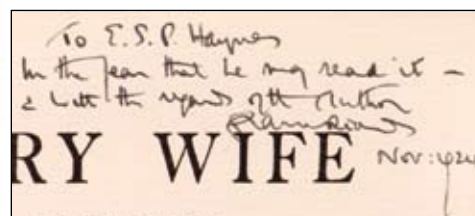 To E.S.P. Haynes
In the fear that he may read it –
& with the regards of the Author
RY WIFE
Nov: 1924